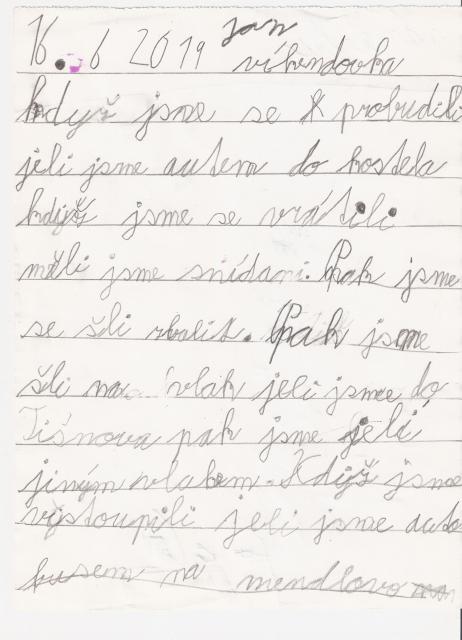 16. 6 2019 Jan
víkendovka
když jsme se probudili
jeli jsme autem do kostela
když jsme se vrátili
měli jsme snídani. Pak jsme
se šli sbalit. Pak jsme
šli na vlak jeli jsme do
Tišnova pak jsme jeli
jiným vlakem. Když jsme
vystoupili jeli jsme auto
busem na mendlovo